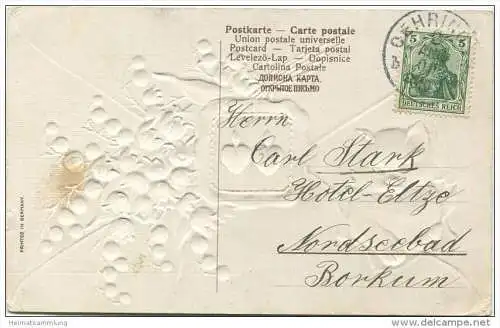 Postkarte — Carte postale
Union postale universelle
Postcard — Tarjeta postal
Levelező-Lap — Dopisnice
Cartolina Postale
ДОПИСНА КАРТА.
ОТКРЫТОЕ ПИСЬМО
GEHRIN
5 5
DEUTSCHES REICH
Herrn
Carl Stark
Hotel-Eltze
Nordseebad
Borkum
PRINTED IN GERMANY.
Heimatsammlung
www.heimatsammlung.de